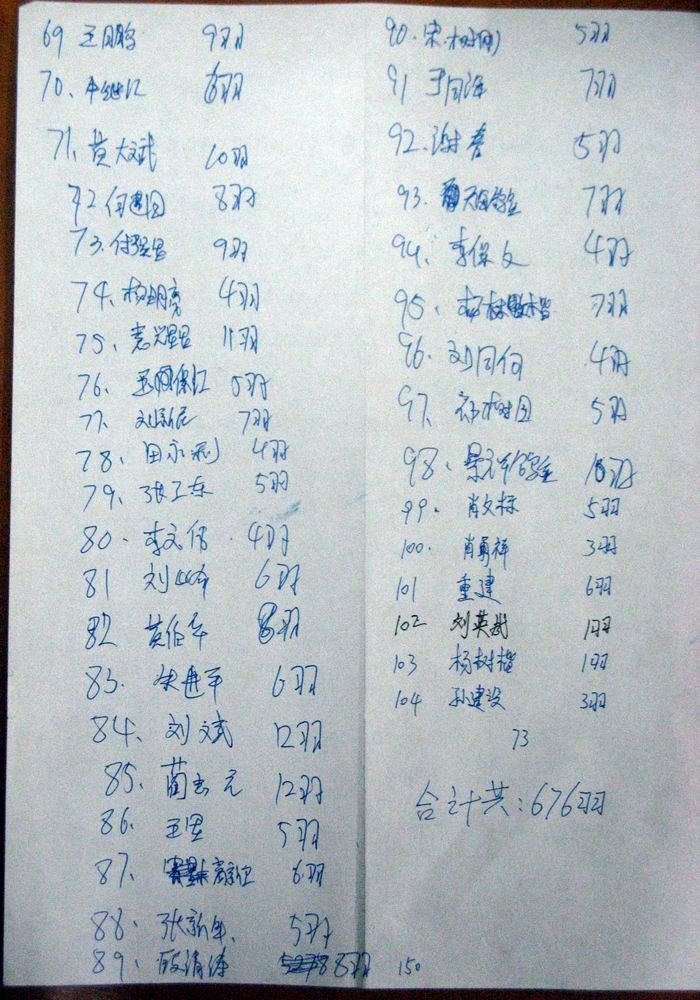 69 王鹏 9羽
70、 6羽
71、黄大斌 10羽
72 何建国 8羽
73、付强 9羽
74、杨明亮 4羽
75、袁兴 11羽
76、 5羽
77、刘 7羽
78、田永利 4羽
79、张卫东 5羽
80、李文伟 4羽
81 刘峰 6羽
82 黄伯年 8羽
83、朱进军 6羽
84、刘斌 12羽
85、蔺志元 12羽
86、王罡 5羽
87、 6羽
88、张新年、 5羽
89、殷清海 8羽 150
90、宋树刚 5羽
91 于同海 7羽
92、谢春 5羽
93、 7羽
94、李保文 4羽
95、杨树楷 7羽
96、刘同何 4羽
97、祁树国 5羽
98、 羽
99、肖文标 5羽
100、肖勇祥 3羽
101 重建 6羽
102 刘英斌 1羽
103 杨树楷 1羽
104 孙建设 3羽
73
合计共:676羽